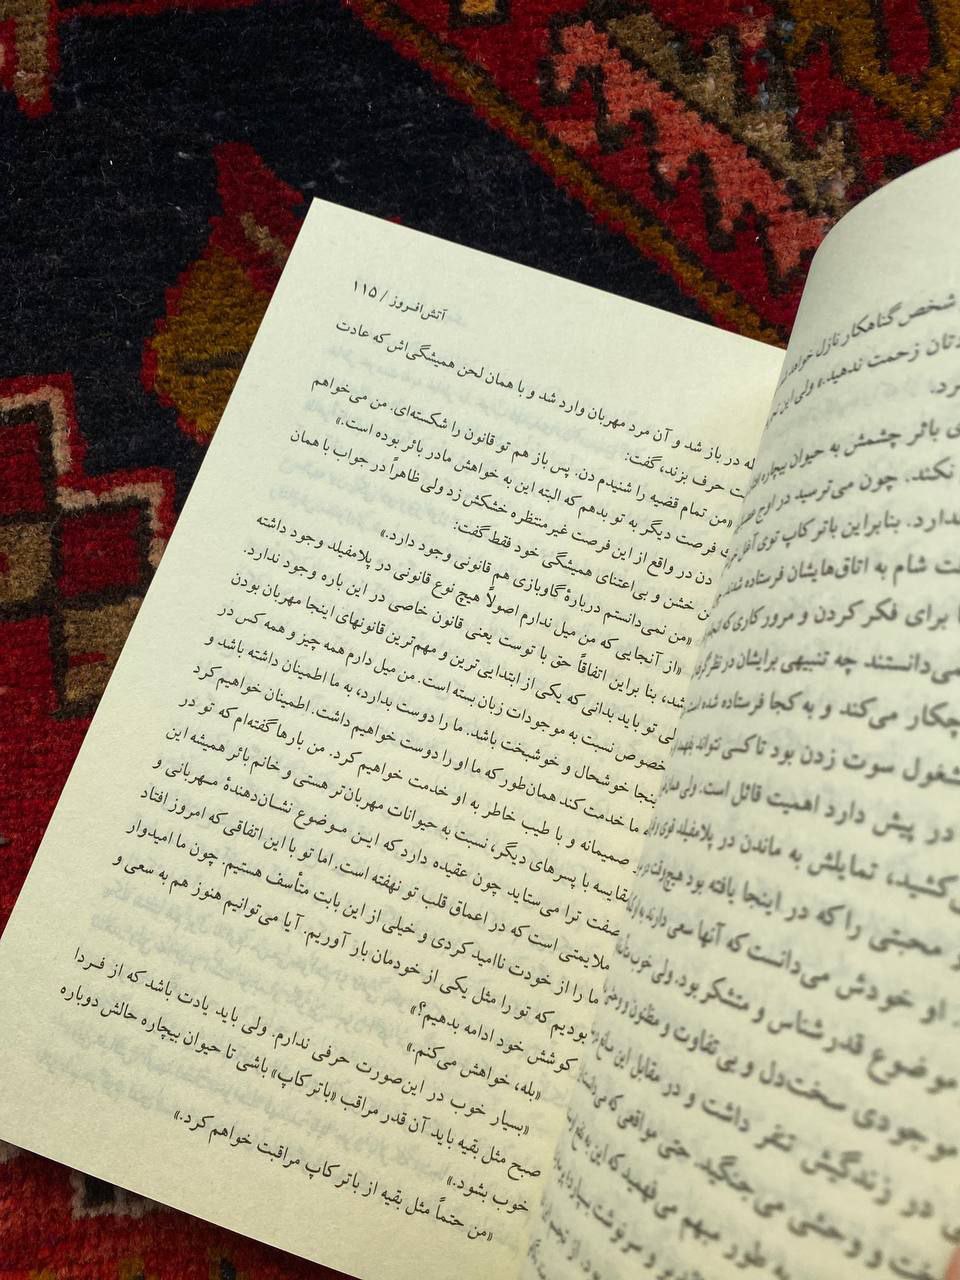 آتش‌افروز / ۱۱۵
در باز شد و آن مرد مهربان وارد شد و با همان لحن همیشگی‌اش که عادت
حرف بزند، گفت:
«من تمام قضیه را شنیدم دن. پس باز هم تو قانون را شکسته‌ای. من می‌خواهم
فرصت دیگر به تو بدهم که البته این به خواهش مادر بائر بوده است.»
دن در واقع از این فرصت غیرمنتظره خشکش زد ولی ظاهراً در جواب با همان
خشن و بی‌اعتنای همیشگی خود فقط گفت:
«من نمی‌دانستم دربارهٔ گاوبازی هم قانونی وجود دارد.»
«از آنجایی که من میل ندارم اصولاً هیچ نوع قانونی در پلامفیلد وجود داشته
شد، بنا براین اتفاقاً حق با توست یعنی قانون خاصی در این باره وجود ندارد.
تو باید بدانی که یکی از ابتدایی‌ترین و مهم‌ترین قانونهای اینجا مهربان بودن
خصوص نسبت به موجودات زبان بسته است. من میل دارم همه چیز و همه کس در
اینجا خوشحال و خوشبخت باشد. ما را دوست بدارد، به ما اطمینان داشته باشد و
ما خدمت کند همان‌طور که ما او را دوست خواهیم داشت. اطمینان خواهیم کرد
صمیمانه و با طیب خاطر به او خدمت خواهیم کرد. من بارها گفته‌ام که تو در
مقایسه با پسرهای دیگر، نسبت به حیوانات مهربان‌تر هستی و خانم بائر همیشه این
صفت ترا می‌ستاید چون عقیده دارد که ایـن مـوضوع نشـان‌دهندهٔ مـهربانی و
ملایمتی است که در اعماق قلب تو نهفته است. اما تو با این اتفاقی که امروز افتاد
ما را از خودت ناامید کردی و خیلی از این بابت متأسف هستیم. چون ما امیدوار
بودیم که تو را مثل یکی از خودمان بار آوریم. آیا می‌توانیم هنوز هم به سعی و
کوشش خود ادامه بدهیم؟»
«بله، خواهش می‌کنم.»
«بسیار خوب در این‌صورت حرفی ندارم. ولی باید یادت باشد که از فـردا
صبح مثل بقیه باید آن قدر مراقب «باتر کاپ» باشی تا حیوان بیچاره حالش دوباره
خوب بشود.»
«من حتماً مثل بقیه از باتر کاپ مراقبت خواهم کرد.»
شخص گناهکار نازل خواهد
زحمت ندهید.» ولی این
بائر چشمش به حیوان بیچاره
نکند. چون می‌ترسید در اوج
ندارد. بنابراین باتر کاپ توی
شام به اتاق‌هایشان فرستاده
برای فکر کردن و مرور کاری که
نمی‌دانستند چه تنبیهی برایشان در نظر
چکار می‌کند و به کجا فرستاده شده
مشغول سوت زدن بود تا کسی نتواند
در پیش دارد اهمیت قائل است. ولی
کشید، تمایلش به ماندن در پلامفیلد توی
محبتی را که در اینجا یافته بود هیچ‌وقت
او خودش می‌دانست که آنها سعی دارند
موضوع قدرشناس و متشکر بود. ولی
موجودی سخت‌دل و بی‌تفاوت و مظنون و
در زندگیش تنفر داشت و در مقابل این
و وحشی می‌جنگید. حتی مواقعی که
به طور مبهم می فهمید که این به نفع